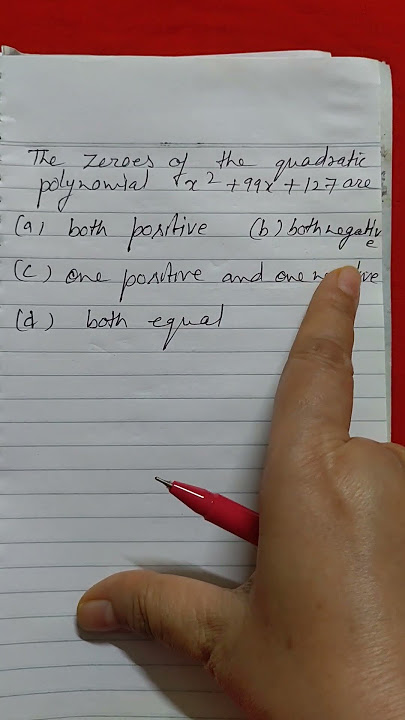 The zeroes of the quadratic
polynomial x² + 99x + 127 are
(a) both positive (b) both negative
(c) one positive and one negative
(d) both equal